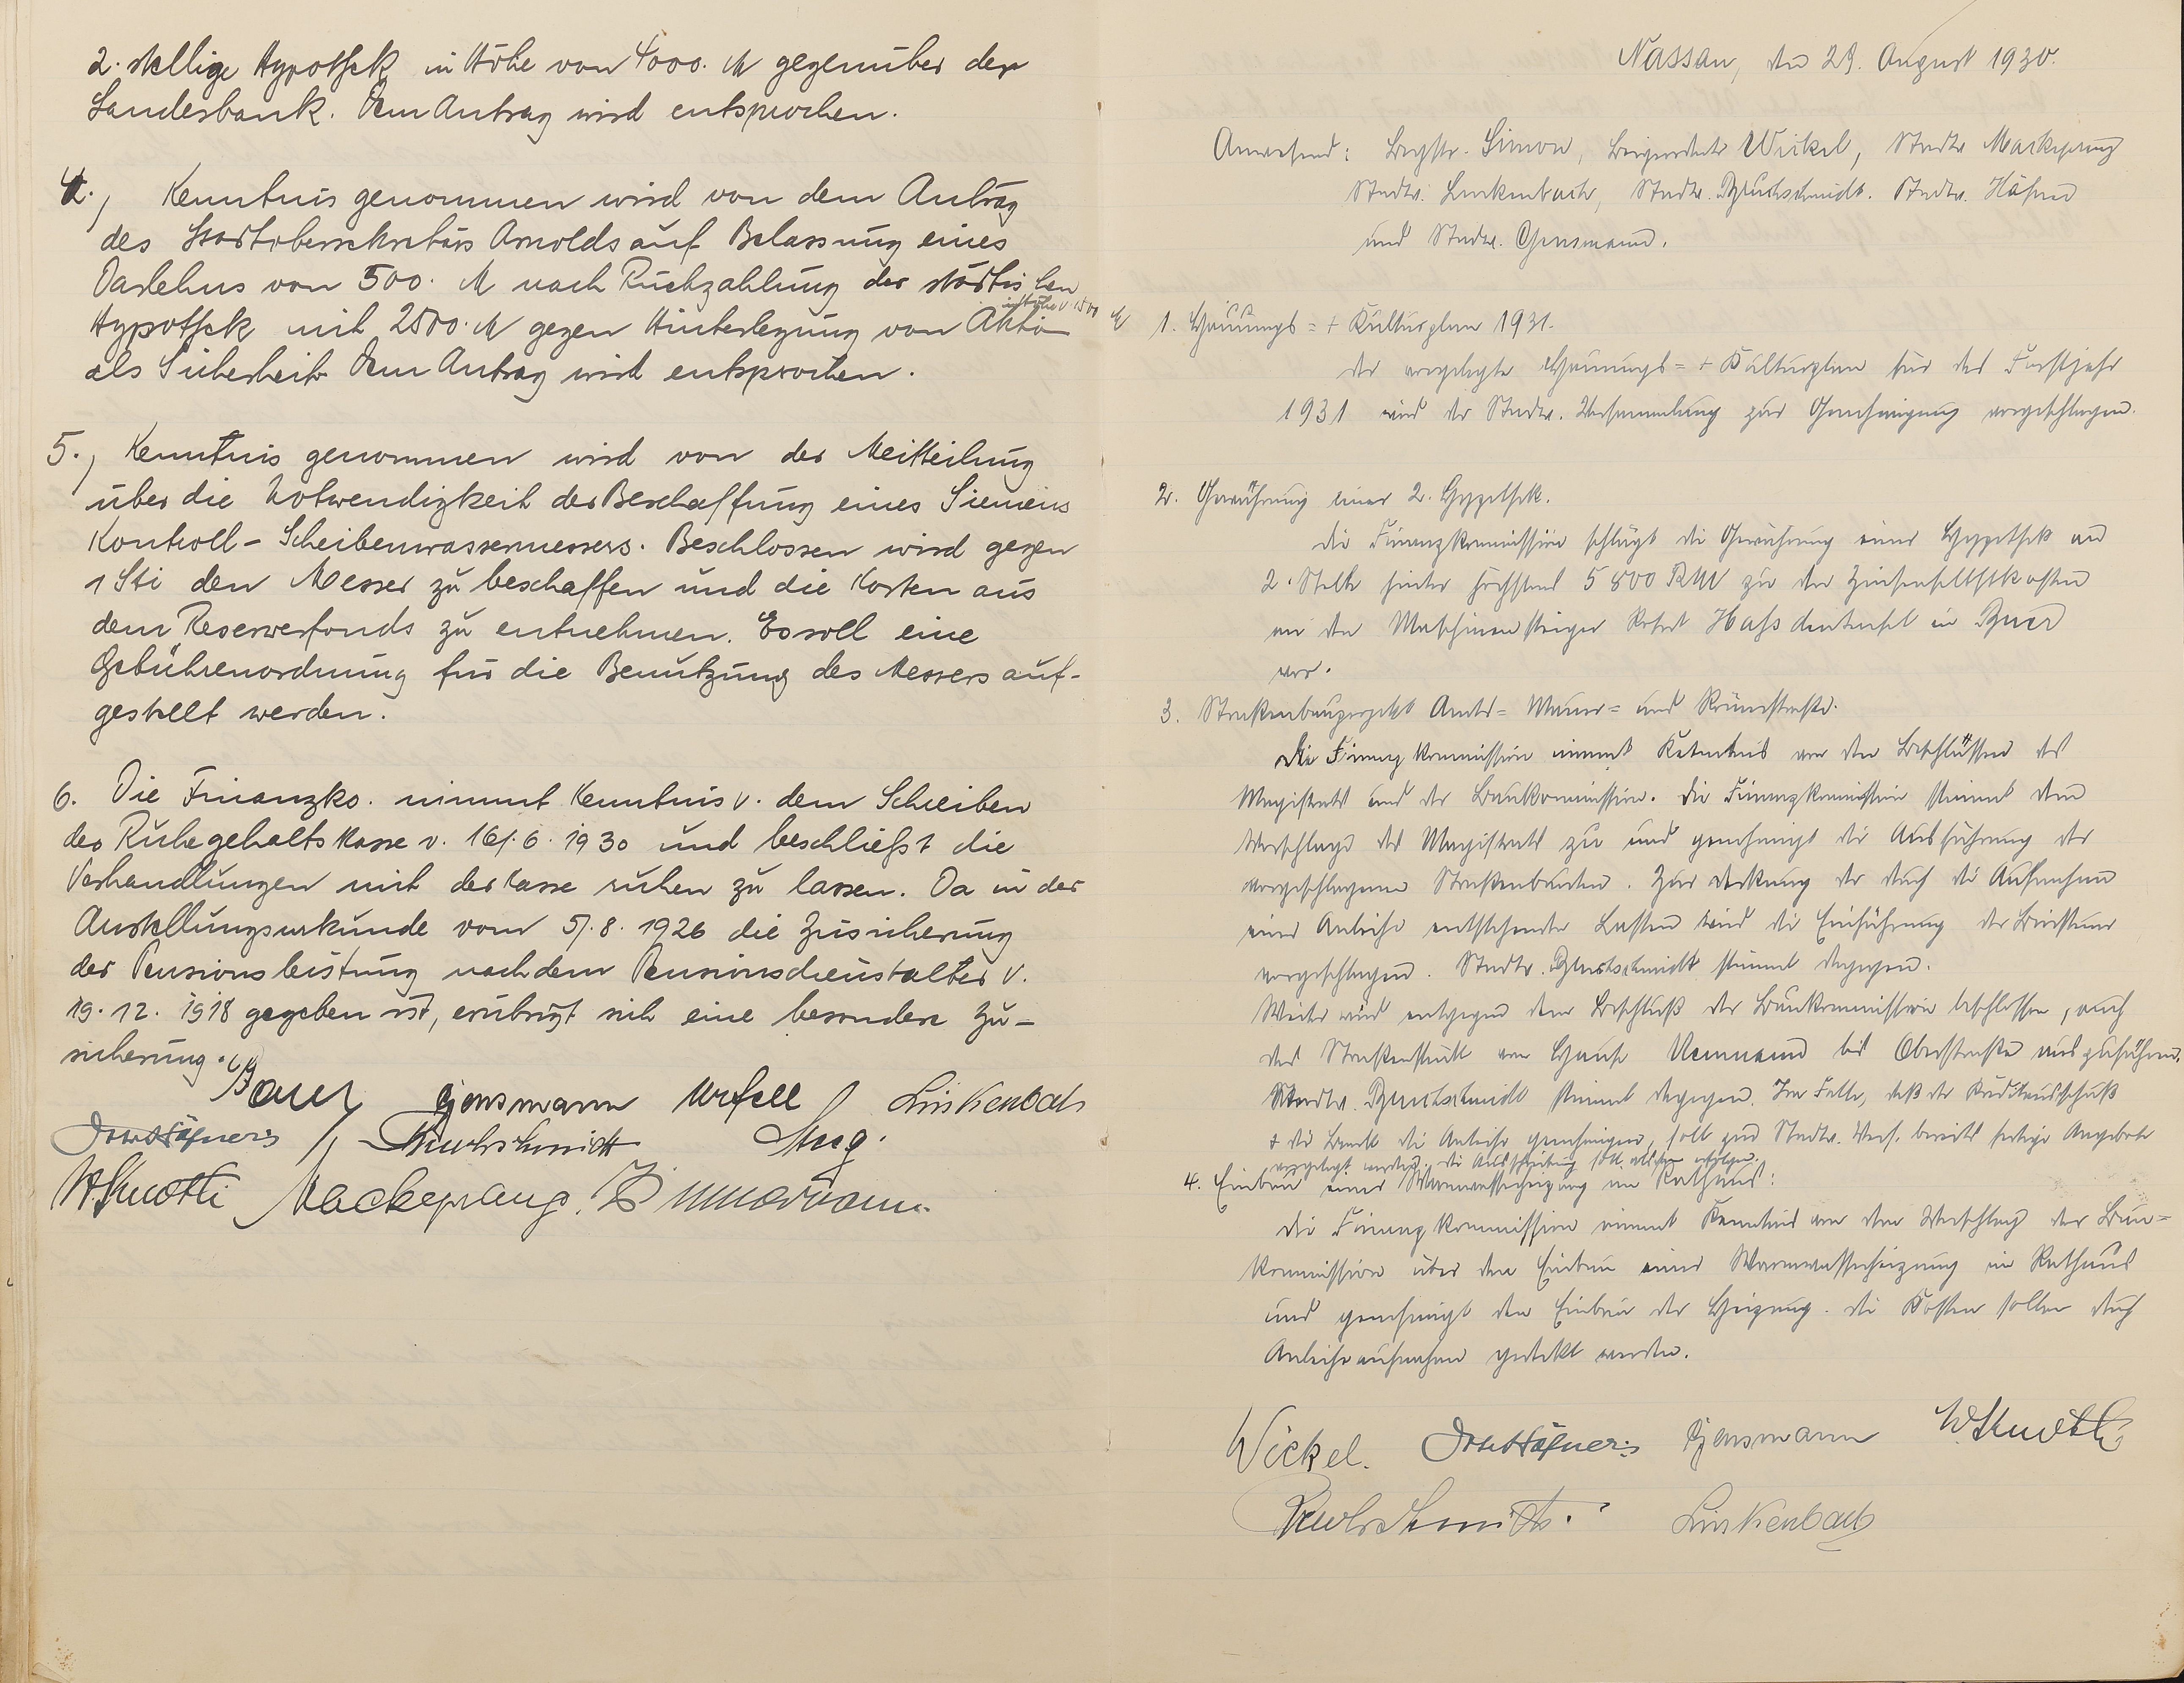 2. stellige Hypothek in Höhe von 4000. M gegenüber der
Landesbank. Dem Antrag wird entsprochen.
4., Kenntnis genommen wird von dem Antrag
des Stadtobersekretärs Arnolds auf Belassung eines
Darlehns von 500. M nach Rückzahlung der städtischen
in Höhe v. 1500 M
Hypothek mit 2500. M gegen Hinterlegung von Aktien
als Sicherheit. Dem Antrag wird entsprochen.
5., Kenntnis genommen wird von der Mitteilung
über die Notwendigkeit der Beschaffung eines Siemens
Kontroll-Scheibenwassermessers. Beschlossen wird gegen
1 Sti den Messer zu beschaffen und die Kosten aus
dem Reservefonds zu entnehmen. Es soll eine
Gebührenordnung für die Benutzung des Messers auf-
gestellt werden.
6. Die Finanzko. nimmt Kenntnis v. dem Schreiben
der Ruhegehaltskasse v. 16/.6. 1930 und beschließt die
Verhandlungen mit der Kasse ruhen zu lassen. Da in der
Anstellungsurkunde vom 5/.8. 1926 die Zusicherung
der Pensionsleistung nach dem Pensionsdienstalter v.
19. 12. 1918 gegeben ist, erübrigt sich eine besondere Zu-
sicherung.
Bauer Gensmann Unfell Linkenbach
Josef Häfner Bruchschmidt
W Knoth Mackeprang. Zimmermann
Nassau, den 29. August 1930.
Anwesend: Bgstr. Simon, Beigeordneter Wickel, Stadtv. Mackeprang
Stadtv. Linkenbach, Stadtv. Bruchschmidt. Stadtv. Häfner
und Stadtv. Gensmann.
1. Hauungs= + Kulturplan 1931.
Der vorgelegte Hauungs= + Kulturplan für das Forstjahr
1931 wird der Stadtv. Versammlung zur Genehmigung vorgeschlagen.
2. Gewährung einer 2. Hypothek.
Die Finanzkommission schlägt die Gewährung einer Hypothek an
2. Stelle hinter höchstens 5800 RM zu den
an den Maschinensteiger Robert in Buer
vor.
3. Straßenbauprojekt Amts= Mauer= und Römerstraße.
Die Finanzkommission nimmt Kenntnis von den Beschlüssen des
Magistrats und der Baukommission. Die Finanzkommission stimmt dem
Vorschlage des Magistrats zu und genehmigt die Ausführung der
vorgeschlagenen Straßenbauten. Zur Deckung der durch die Aufnahme
einer Anleihe entstehenden Lasten wird die Einführung der Biersteuer
vorgeschlagen. Stadtv. Bruchschmidt stimmt dagegen.
Weiter wird entgegen dem Beschluß der Baukommission beschlossen, auch
das Straßenstück von Hause Unmann bis Oberstraße auszuführen.
Stadtv. Bruchschmidt stimmt dagegen. Im Falle, daß der Kreditausschuß
+ die Bank die Anleihe genehmigen, soll zur Stadtv. Vers. bereits fertige Angebote
vorgelegt werden. Die Ausschreibung soll alsdann erfolgen.
4. Einbau einer Warmwasserheizung im Rathaus:
Die Finanzkommission nimmt Kenntnis von dem Vorschlag der Bau=
kommission über den Einbau einer Warmwasserheizung im Rathaus
und genehmigt den Einbau der Heizung. Die Kosten sollen durch
Anleiheaufnahme gedeckt werden.
Wickel. Josef Häfner Gensmann W Knoth
Bruchschmidt. Linkenbach